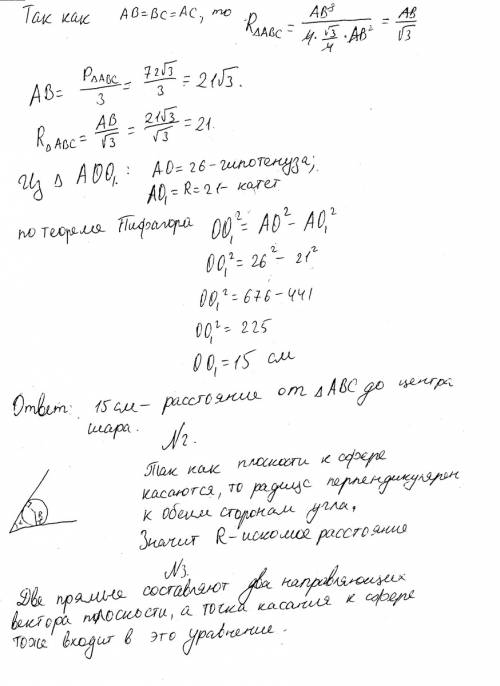 Так как AB=BC=AC, то R△ABC = AB³ / (4·√3/4·AB²) = AB/√3
AB = P△ABC/3 = 72√3/3 = 21√3.
R△ABC = AB/√3 = 21√3/√3 = 21.
Из △AOO₁: AO=26-гипотенуза;
AO₁=R=21- катет
по теореме Пифагора OO₁²=AO²-AO₁²
OO₁²=26²-21²
OO₁²=676-441
OO₁²=225
OO₁=15 см
Ответ: 15 см- расстояние от △ABC до центра
шара.
N2.
Так как плоскости к сфере
касаются, то радиус перпендикулярен
к обеим сторонам угла,
Значит R-искомое расстояние
N3.
Две прямые составляют два направляющих
вектора плоскости, а точки касания к сфере
тоже входит в это уравнение.